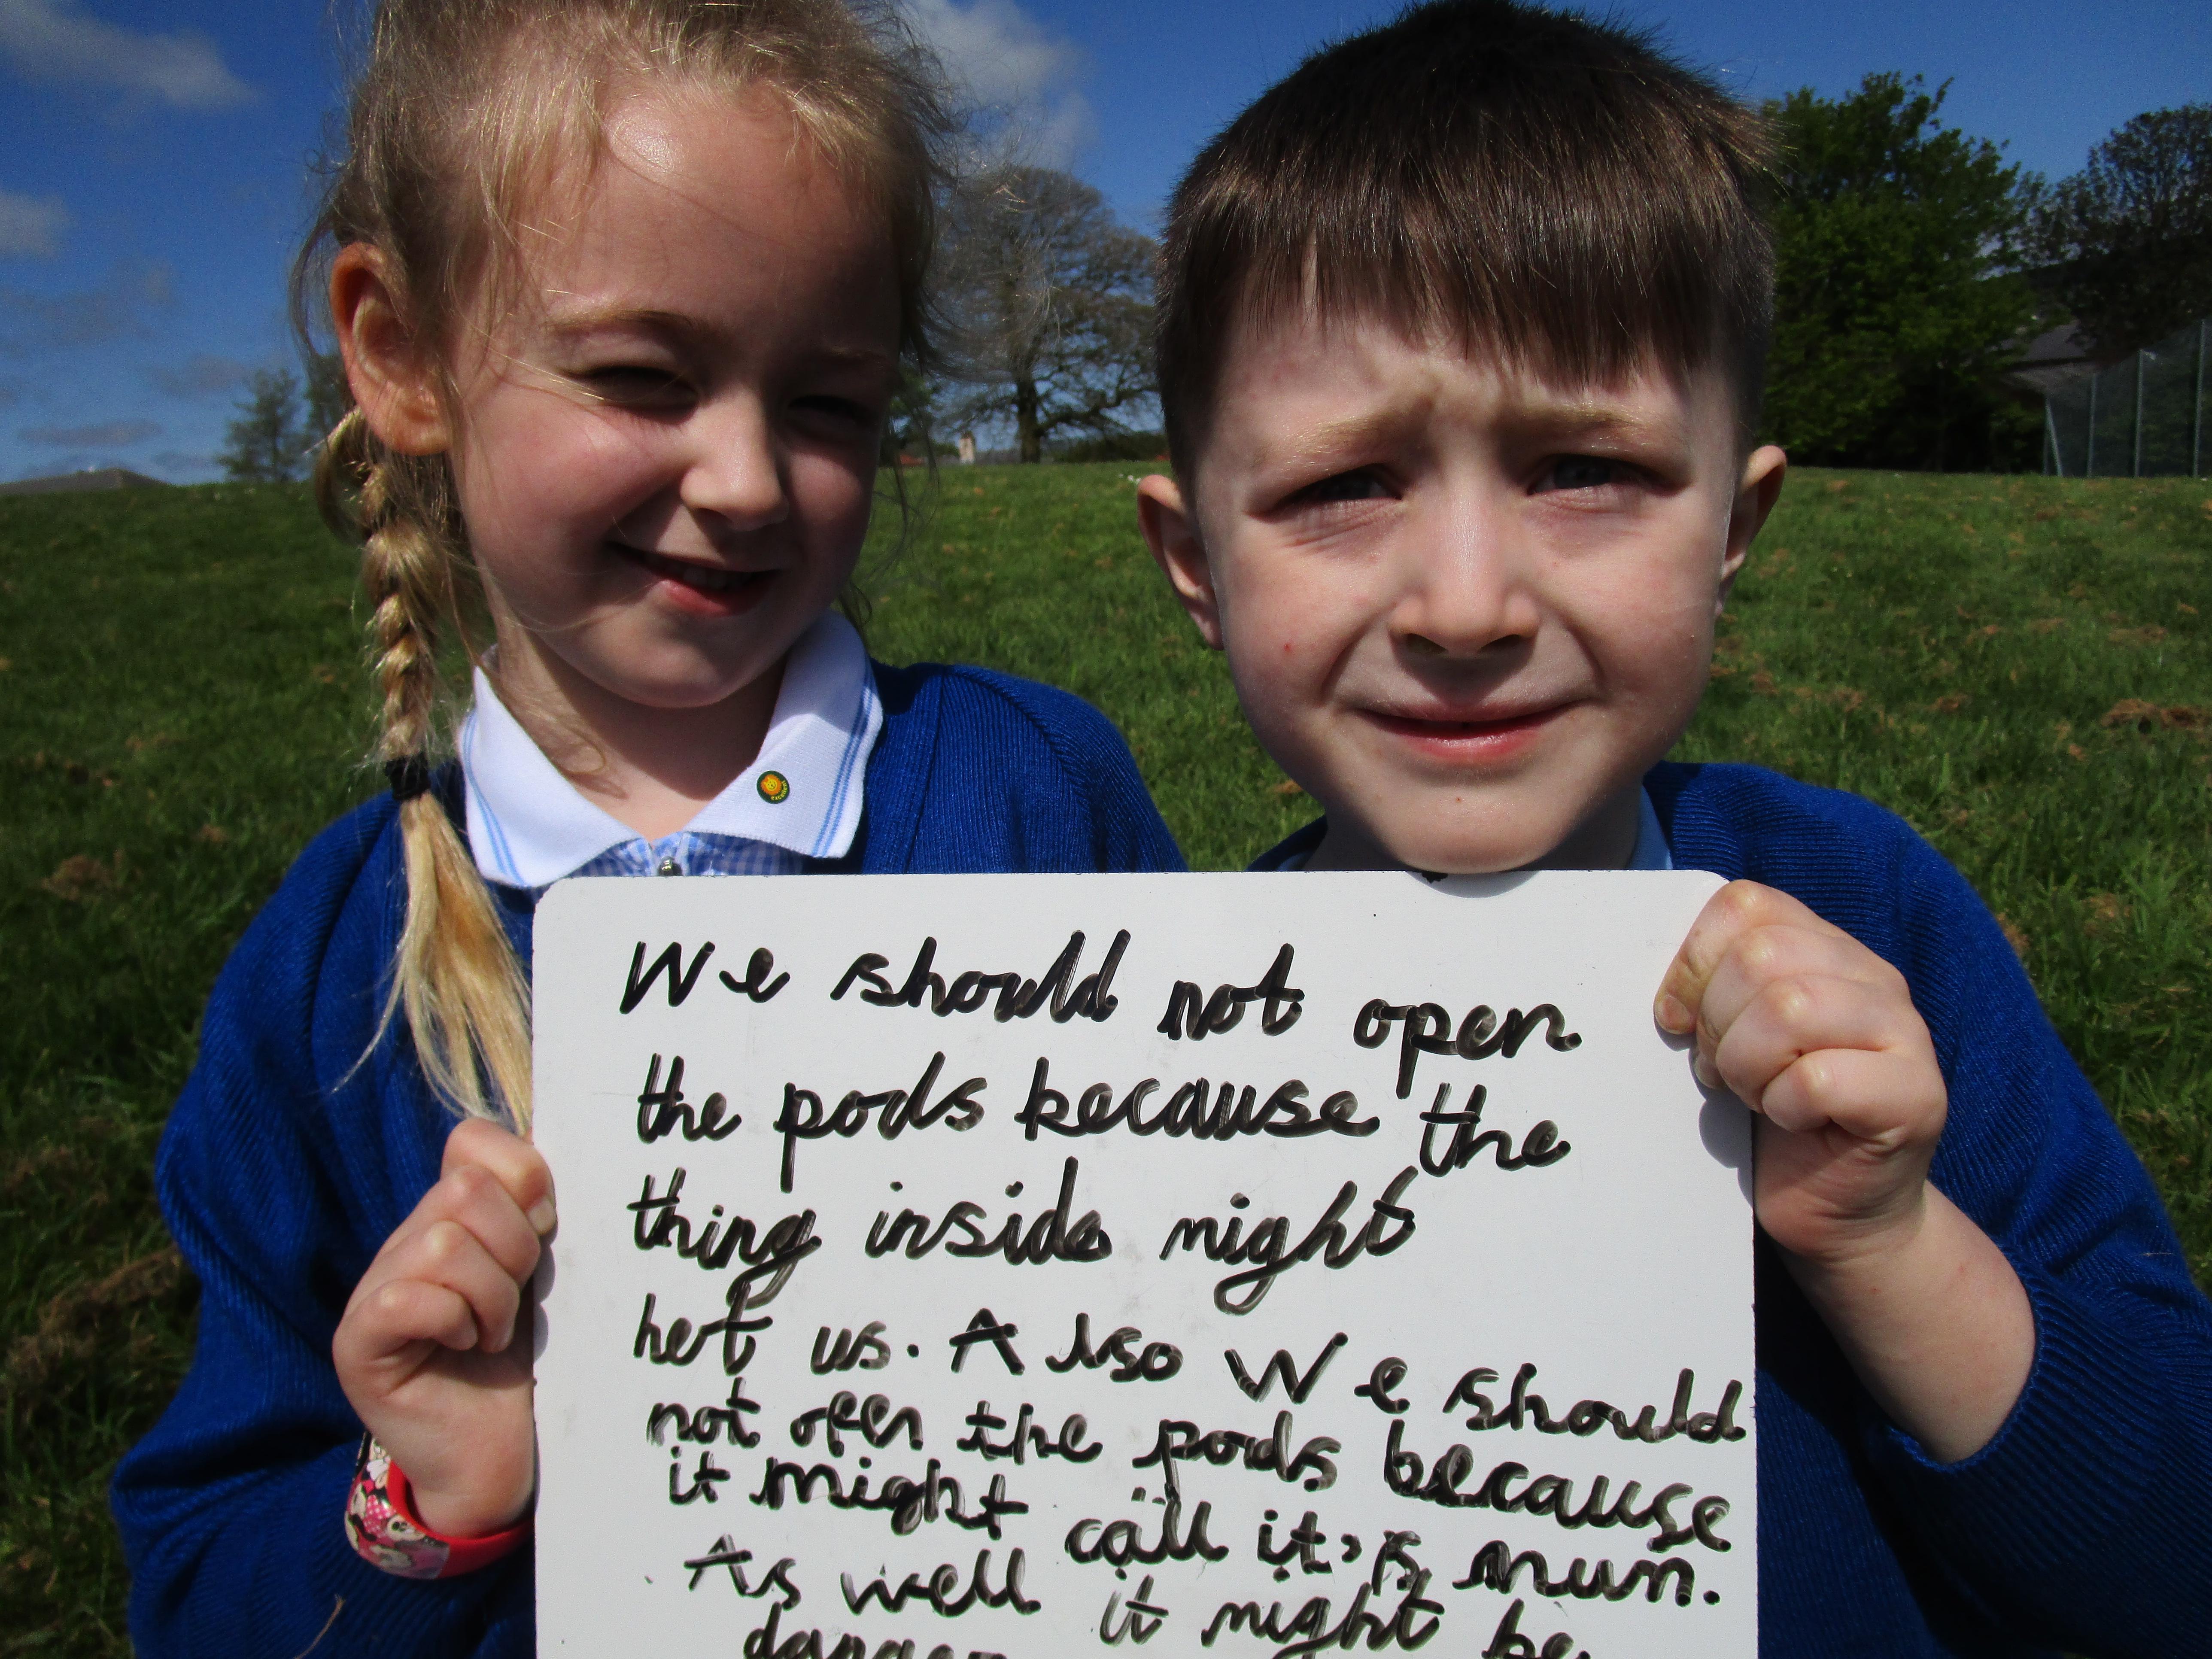 We should not open
the pods because the
thing inside might
hert us. Also We should
not open the pods because
it might call it's mum.
As well it might be